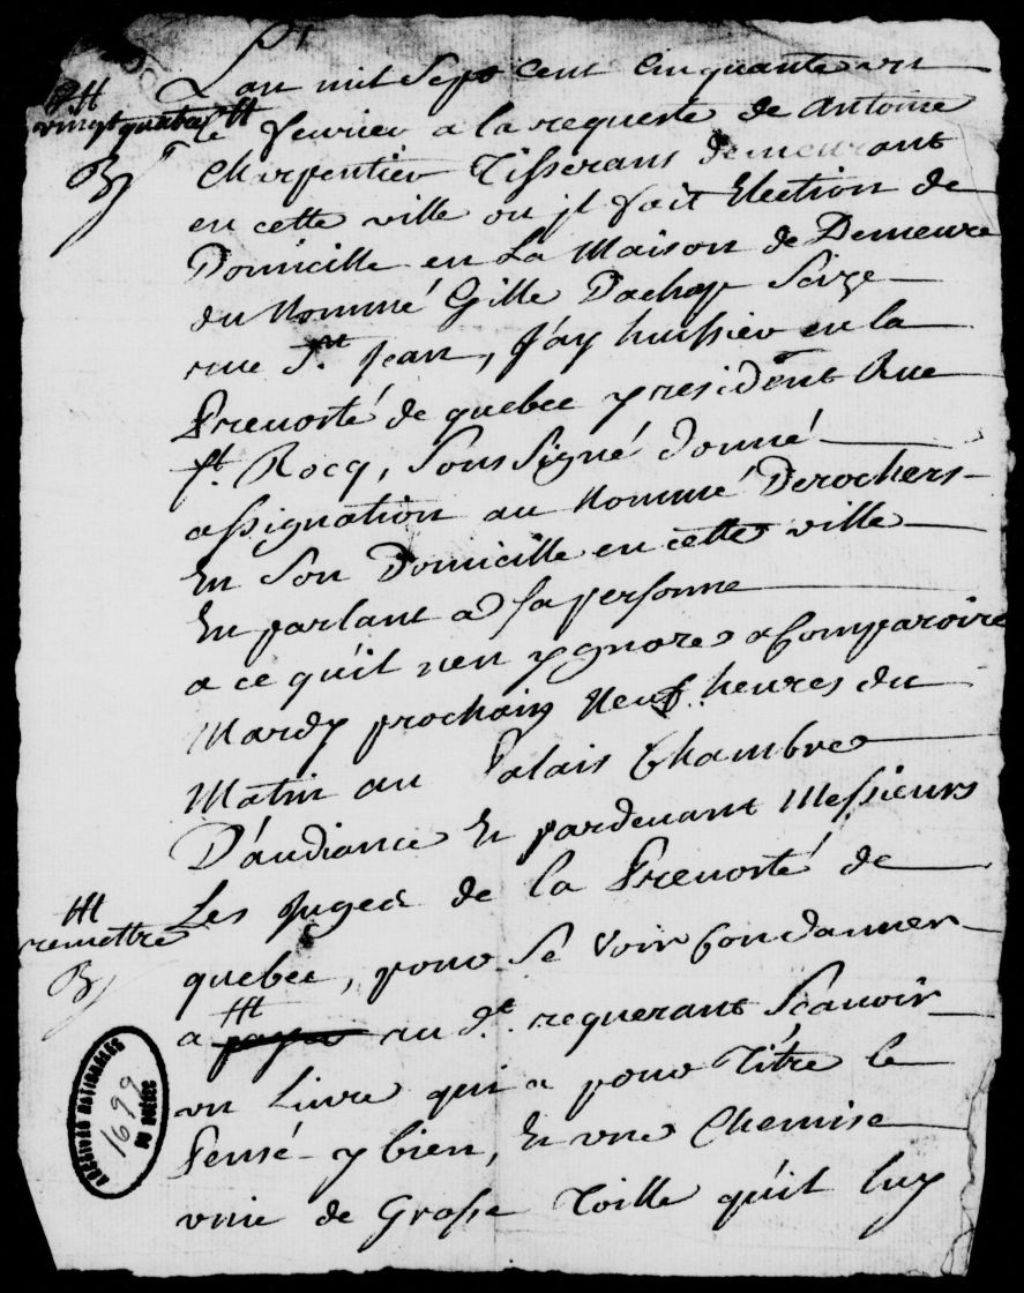 L'an mil Sept Cent Cinquante un
vingt quatre
le fevrier a la requeste de Antoine
Charpentier Tisserans demeurant
en cette ville ou jl fait Election de
Domicille en La Maison de Demeure
du Nommé Gille Dachap Seize
rue St. Jean, J'ay huissier en la
Prevosté de quebec y resident Rue
St. Rocq, Sous Signé donné
assignation au Nommé Derochers
En Son Domicille en cette ville
En parlant a sa personne
a ce qu'il n'en ygnore a Comparoire
Mardy prochain Neuf heures du
Matin au Palais Chambre
D'audiance En pardevant Messieurs
Les Juges de la Prevosté de
remettre
quebec, pour Se Voir Condamner
a payer au d.t requerant Scavoir
un Livre qui a pour Titre le
Pensé y bien, En une Chemise
unie de Grosse Toille qu'il luy
ARCHIVES NATIONALES
1699
DU QUÉBEC